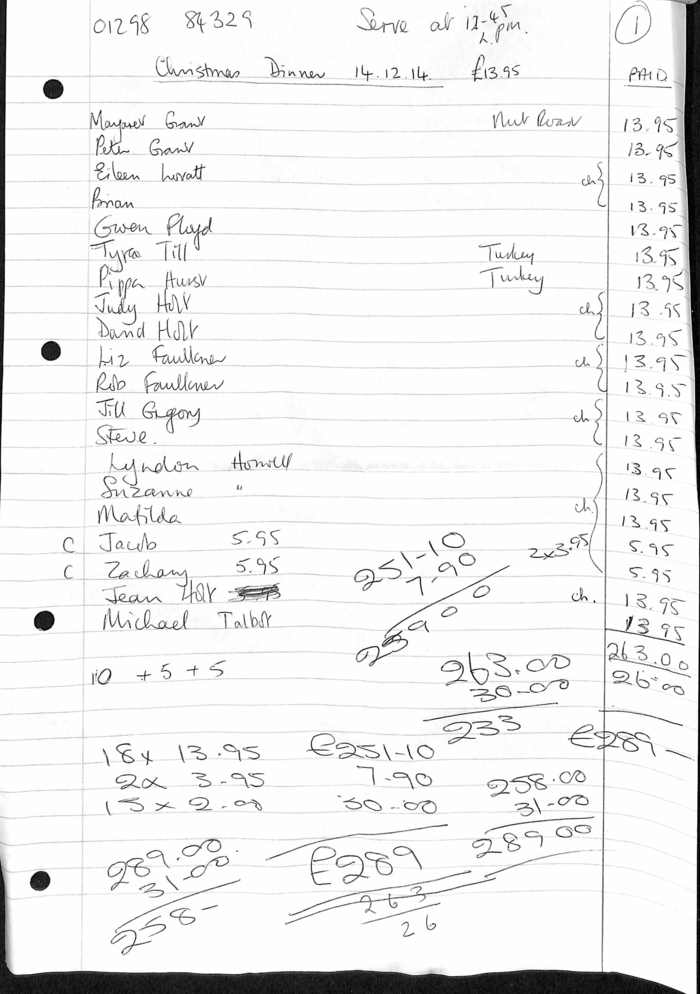 01298 84329 Serve at 12-45 p.m. 1
Christmas Dinner 14.12.14. £13.95 PAID
Margaret Grant Nut Roast 13.95
Peter Grant 13.95
Eileen Lovatt ch 13.95
Brian 13.95
Gwen Floyd 13.95
Till Turkey 13.95
Pippa Hurst Turkey 13.95
Judy Holt ch 13.95
David Holt 13.95
Liz Faulkner ch 13.95
Rob Faulkner 13.9.5
Jill Gregory ch 13.95
Steve. 13.95
Lyndon Howell 13.95
Suzanne " 13.95
Matilda ch. 13.95
C Jacob 5.95 5.95
C Zachary 5.95 5.95
Jean Holt ch. 13.95
Michael Talbot 13.95
251-10
7-90
259 00
2x3.95
263.00
26-00
£289-
10 + 5 + 5
263.00
30-00
233
18x 13.95 £251-10
2x 3.95 7.90
15 x 2.00 30-00
£289
263
26
258.00
31-00
289 00
289.00
31-00
258-